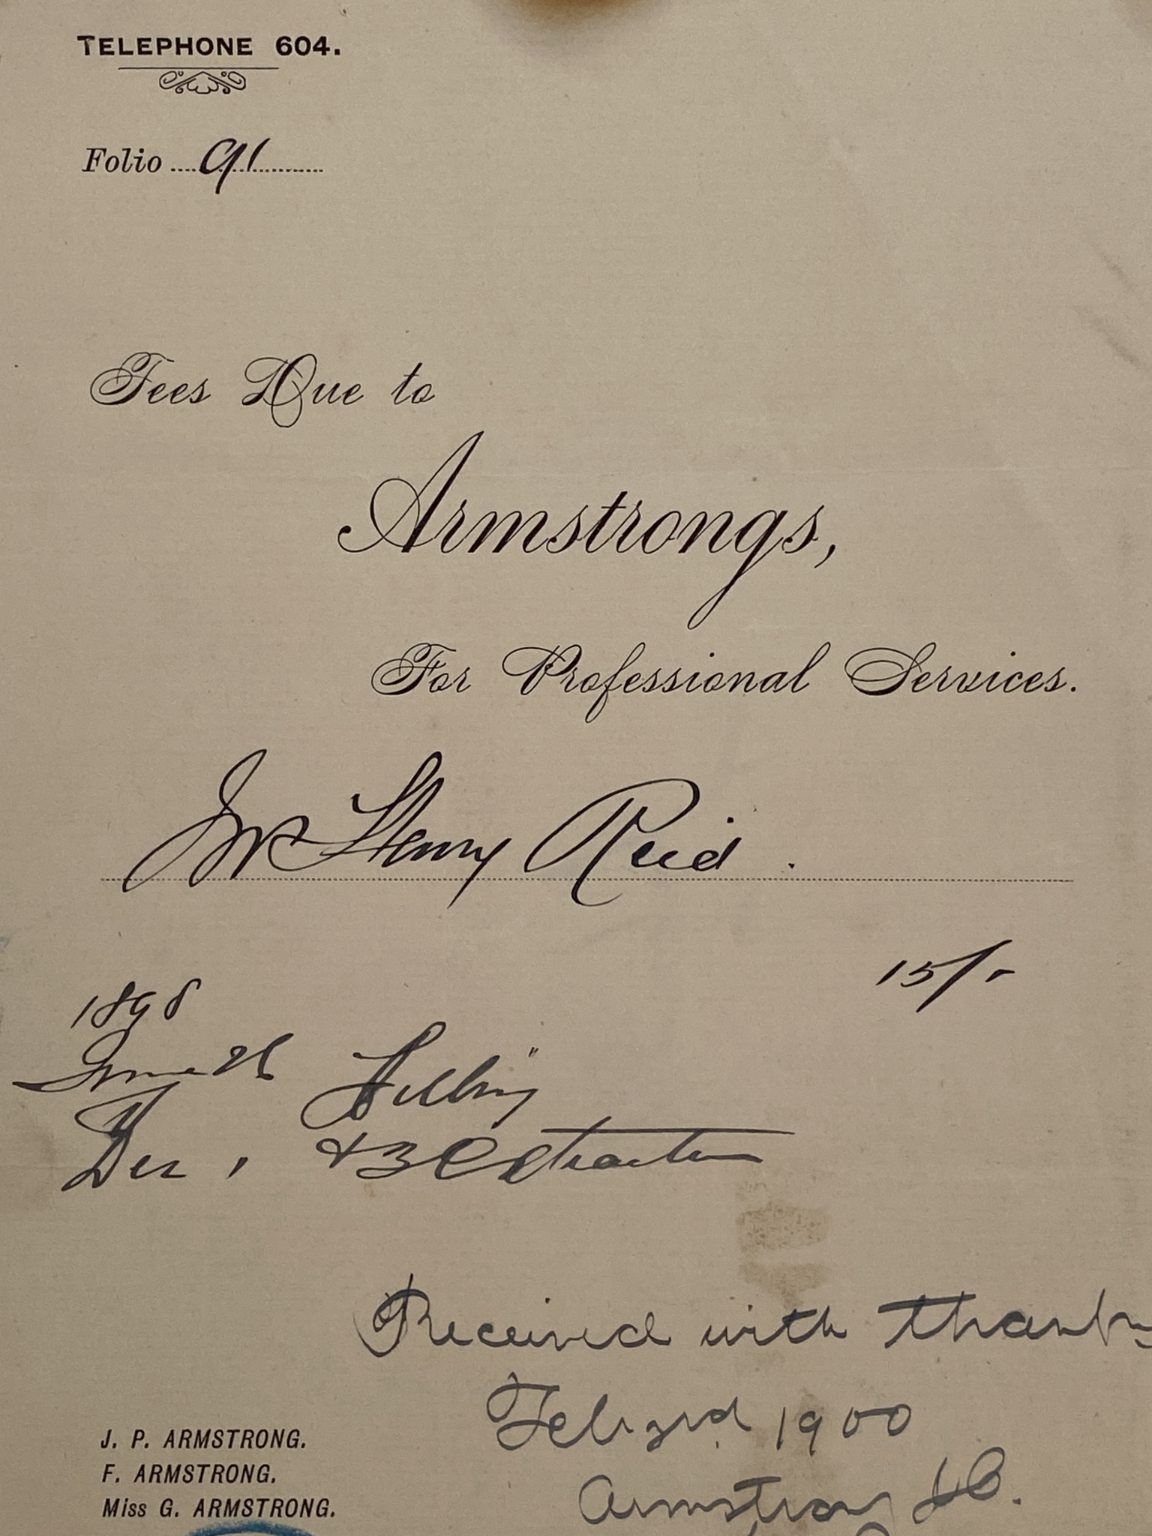 TELEPHONE 604.
Folio 91
Fees Due to
Armstrongs,
For Professional Services.
Henry Reid.
15/-
1898
June 26 Filling
Dec , + 3 Extraction
Received with thanks
Feb 3rd 1900
Armstrong
J. P. ARMSTRONG.
F. ARMSTRONG.
Miss G. ARMSTRONG.